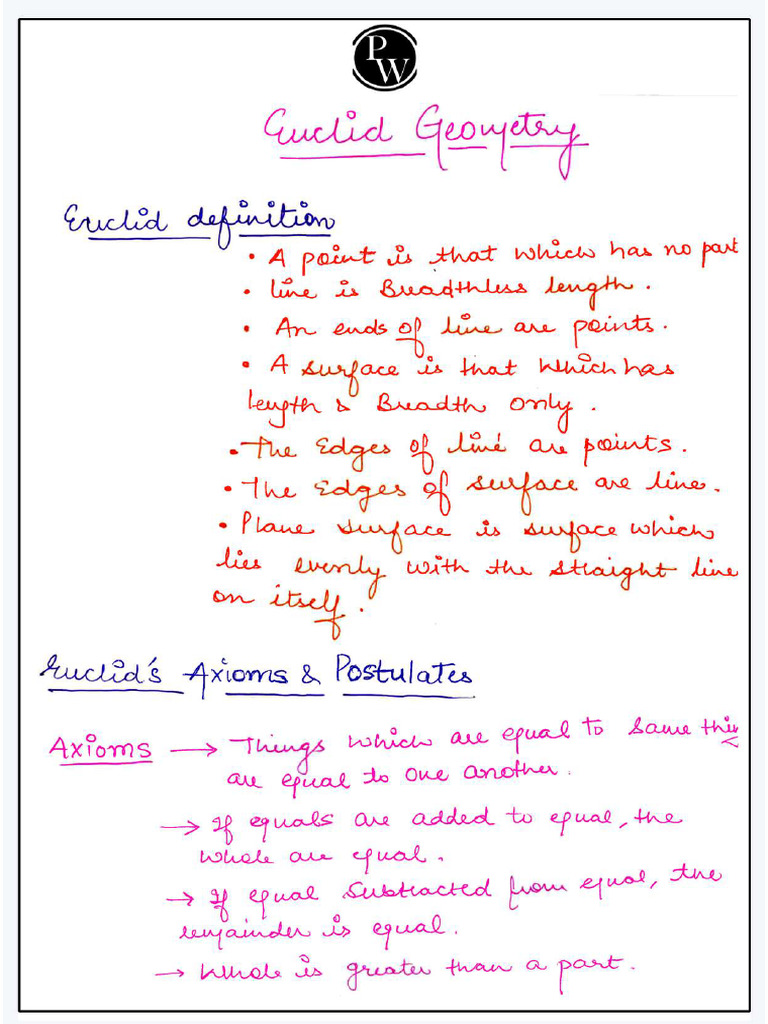 PW
Euclid Geometry
Euclid definition
• A point is that which has no part
• line is Breadthless length.
• An ends of line are points.
• A surface is that which has
length & Breadth only.
• The Edges of line are points.
• The Edges of surface are line.
• Plane surface is surface which
lies evenly with the straight line
on itself.
Euclid's Axioms & Postulates
Axioms → Things which are equal to same thin
are equal to one another.
→ If equals are added to equal, the
whole are equal.
→ If equal subtracted from equal, the
remainder is equal.
→ Whole is greater than a part.